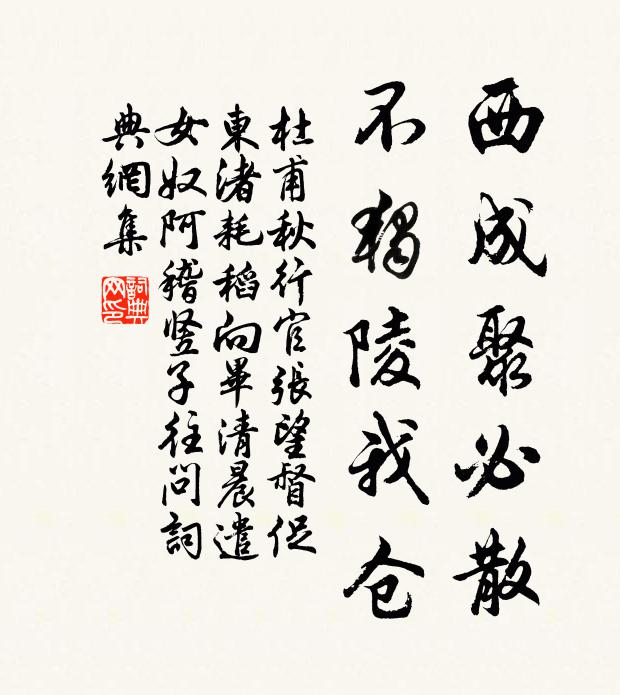 西成聚必散
不獨陵我仓
杜甫秋行官張望督促
東渚耗稻向畢清晨遣
女奴阿稽竖子往問詞
典網集
詞典
网印